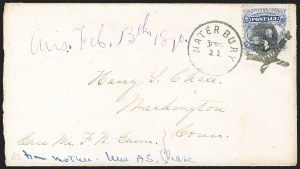 POSTAGE
WATERBURY
11
Ans. Feb. 13th 1870.
Henry S. Chase.
Washington
Care Mr. F. W. Gunn. Conn.
from mother. Mrs A.S. Chase